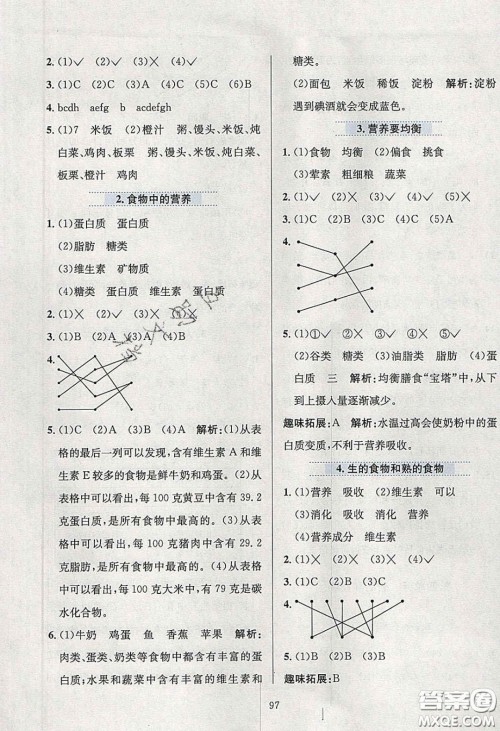 2. (1)√ (2)× (3)× (4)√
3. (1)C (2)C (3)A (4)C (5)C
4. bcdh aefg b acdefgh
5. (1)7 米饭 (2)橙汁 粥、馒头、米饭、炖
白菜、鸡肉、板栗 粥、馒头、米饭、炖白
菜、板栗、橙汁 鸡肉
2. 食物中的营养
1. (1)蛋白质 蛋白质
(2)脂肪 糖类
(3)维生素 矿物质
(4)糖类 蛋白质 维生素 蛋白质
2. (1)√ (2)× (3)√ (4)×
3. (1)B (2)A (3)A (4)B
4.
5. (1)C (2)B (3)A (4)A 解析:(1)从表
格的最后一列可以发现,含有维生素 A 和
维生素 E 较多的食物是鲜牛奶和鸡蛋。
(2)从表格中可以看出,每 100 克黄豆中有 39.2
克蛋白质,是所有食物中最高的。(3)从表
格中可以看出,每 100 克猪肉中含有 29.2
克脂肪,是所有食物中最高的。(4)从表格
中可以看出,每 100 克大米中,有 79 克是碳
水化合物。
6. (1)牛奶 鸡蛋 鱼 香蕉 苹果 解析:
肉类、蛋类、奶类等食物中含有丰富的蛋
白质;水果和蔬菜中含有丰富的维生素和
糖类。
(2)面包 米饭 稀饭 淀粉 解析:淀粉
遇到碘酒就会变成蓝色。
3. 营养要均衡
1. (1)食物 均衡 (2)偏食 挑食
(3)荤素 粗细粮 蔬菜
2. (1)√ (2)× (3)√ (4)√ (5)×
3. (1)C (2)B (3)B (4)A
4.
5. (1)①√ ②√ ③× ④√ ⑤×
(2)谷类 糖类 (3)油脂类 脂肪 (4)蛋
白质 三 解析:均衡膳食“宝塔”中,从下
到上摄入量逐渐减少。
趣味拓展:A 解析:水温过高会使奶粉中的蛋
白质变质,不利于营养吸收。
4. 生的食物和熟的食物
1. (1)营养 吸收 (2)维生素 可以
(3)消化 吸收 消化 吸收
(4)营养成分 维生素
2. (1)× (2)√ (3)√
3. (1)B (2)B (3)C
4.
趣味拓展:B
97
答案圈
MXQE.COM